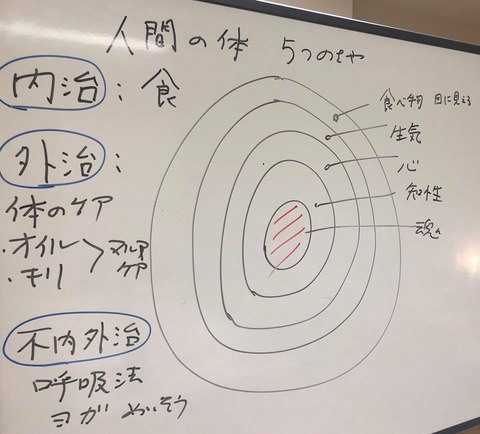 人間の体 5つのさや
内治：食
外治：
体のケア
・オイル
マルマ
ケア
不内外治
呼吸法
ヨガ めいそう
食べ物 目に見える
生気
心
知性
魂